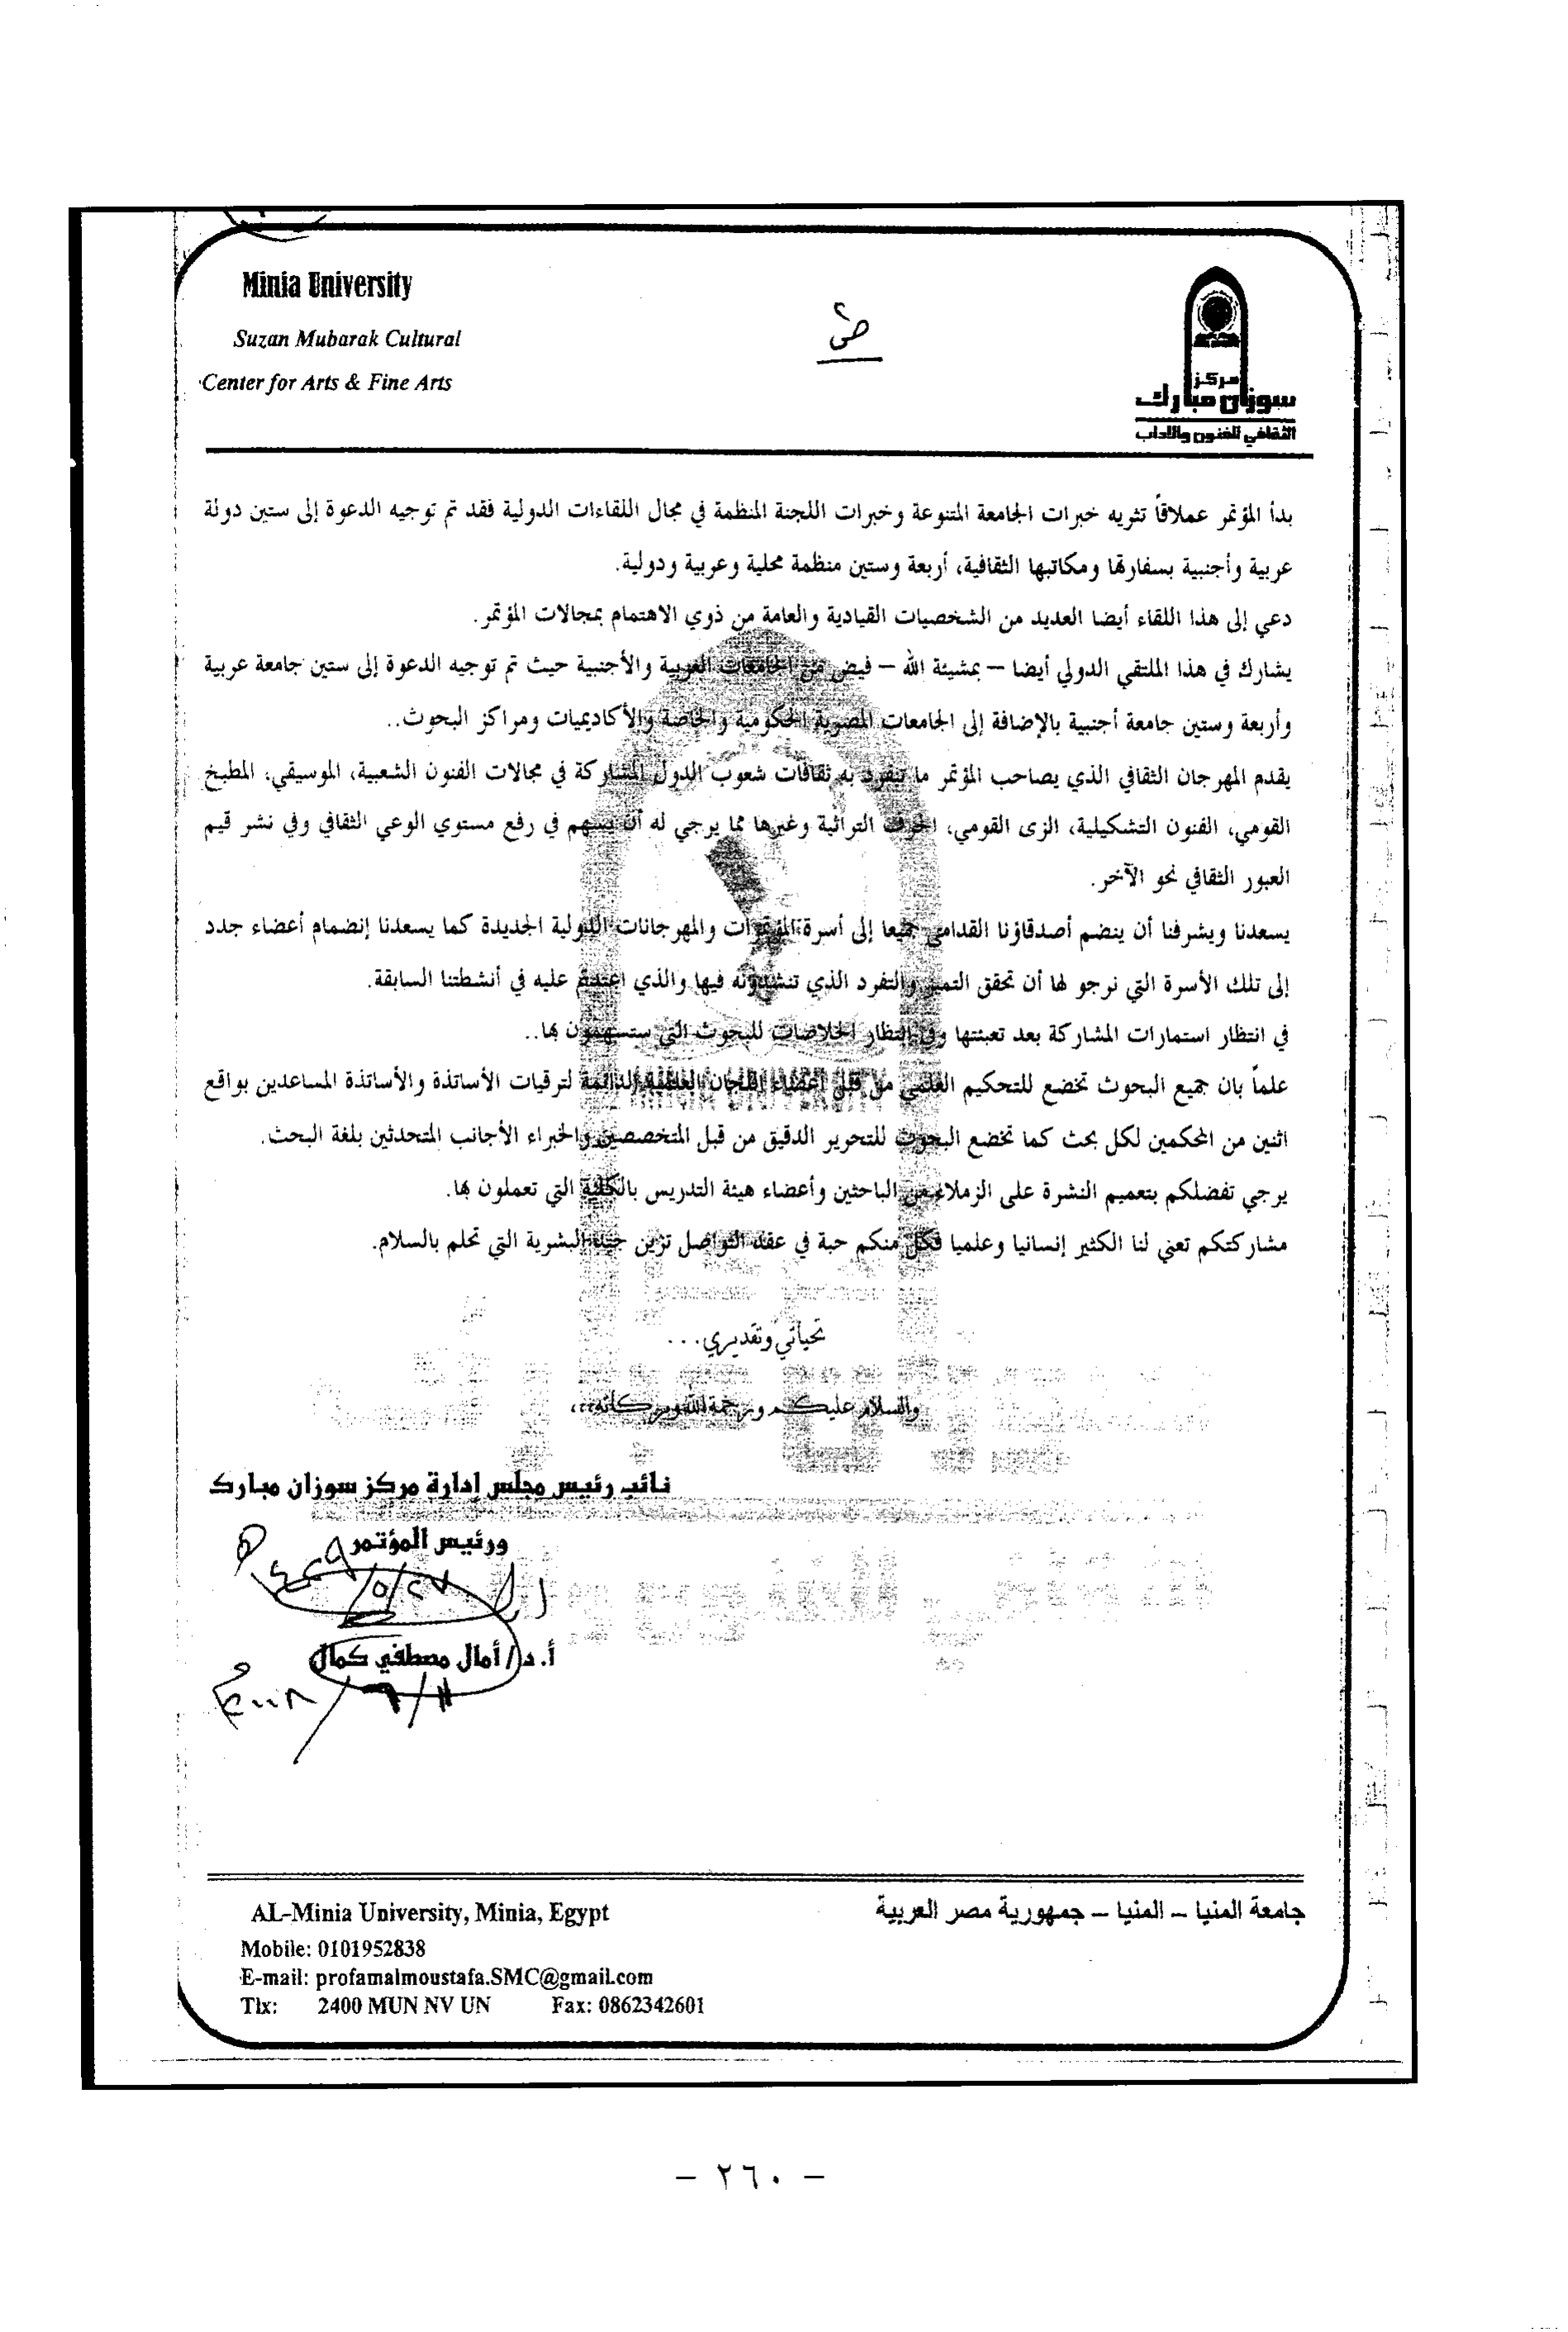 Minia University
Suzan Mubarak Cultural
Center for Arts & Fine Arts
مركز
سوزان مبارك
الثقافي للفنون والآداب
بدأ المؤتمر عملاقاً تثريه خبرات الجامعة المتنوعة وخبرات اللجنة المنظمة في مجال اللقاءات الدولية فقد تم توجيه الدعوة إلى ستين دولة
عربية وأجنبية بسفارتها ومكاتبها الثقافية، أربعة وستين منظمة محلية وعربية ودولية.
دعي إلى هذا اللقاء أيضا العديد من الشخصيات القيادية والعامة من ذوي الاهتمام بمجالات المؤتمر.
يشارك في هذا الملتقي الدولي أيضا – بمشيئة الله – فيض من الجامعات العربية والأجنبية حيث تم توجيه الدعوة إلى ستين جامعة عربية
وأربعة وستين جامعة أجنبية بالإضافة إلى الجامعات المصرية الحكومية والخاصة والأكاديميات ومراكز البحوث..
يقدم المهرجان الثقافي الذي يصاحب المؤتمر ما تنفرد به ثقافات شعوب الدول المشاركة في مجالات الفنون الشعبية، الموسيقي، المطبخ
القومي، الفنون التشكيلية، الزى القومي، الحرف التراثية وغيرها مما يرجي له أن يسهم في رفع مستوي الوعي الثقافي وفي نشر قيم
العبور الثقافي نحو الآخر.
يسعدنا ويشرفنا أن ينضم أصدقاؤنا القدامى جميعا إلى أسرة المؤتمرات والمهرجانات الدولية الجديدة كما يسعدنا إنضمام أعضاء جدد
إلى تلك الأسرة التي نرجو لها أن تحقق التميز والتفرد الذي تنشدونه فيها والذي اعتدتم عليه في أنشطتنا السابقة.
في انتظار استمارات المشاركة بعد تعبئتها وفي انتظار الخلاصات للبحوث التي ستسهمون بها..
علماً بان جميع البحوث تخضع للتحكيم العلمي من قبل أعضاء اللجان العلمية الدائمة لترقيات الأساتذة والأساتذة المساعدين بواقع
اثنين من المحكمين لكل بحث كما تخضع البحوث للتحرير الدقيق من قبل المتخصصين والخبراء الأجانب المتحدثين بلغة البحث.
يرجي تفضلكم بتعميم النشرة على الزملاء من الباحثين وأعضاء هيئة التدريس بالكلية التي تعملون بها.
مشاركتكم تعني لنا الكثير إنسانيا وعلميا فكل منكم حبة في عقد التواصل تزين جيد البشرية التي تحلم بالسلام.
تحياتي وتقديري...
والسلام عليكم ورحمة الله وبركاته،،،
نائب رئيس مجلس إدارة مركز سوزان مبارك
ورئيس المؤتمر
أ. د/ أمال مصطفي كمال
جامعة المنيا – المنيا – جمهورية مصر العربية
AL-Minia University, Minia, Egypt
Mobile: 0101952838
E-mail: profamalmoustafa.SMC@gmail.com
Tlx: 2400 MUN NV UN Fax: 0862342601
– ٢٦٠ –